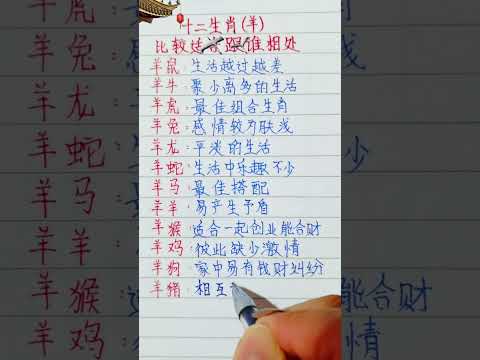 十二生肖(羊)
比较适合跟谁相处
羊鼠:生活越过越差
羊牛:聚少离多的生活
羊虎:最佳组合生肖
羊兔:感情较为肤浅
羊龙:平淡的生活
羊蛇:生活中乐趣不少
羊马:最佳搭配
羊羊:易产生矛盾
羊猴:适合一起创业能合财
羊鸡:彼此缺少激情
羊狗:家中易有钱财纠纷
羊猪:相互